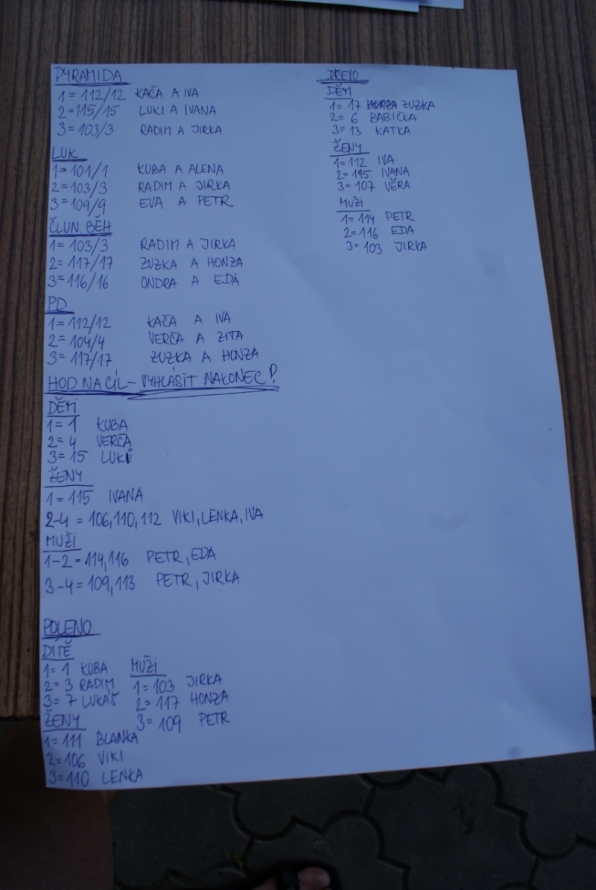 PYRAMIDA
1=112/12 KAČA A IVA
2=115/15 LUKI A IVANA
3=103/3 RADIM A JIRKA
LUK
1=101/1 KUBA A ALENA
2=103/3 RADIM A JIRKA
3=109/9 EVA A PETR
ČLUN BĚH
1=103/3 RADIM A JIRKA
2=117/17 ZUZKA A HONZA
3=116/16 ONDRA A EDA
PD
1=112/12 KAČA A IVA
2=104/4 VERČA A ZITA
3=117/17 ZUZKA A HONZA
HOD NA CÍL - VYHLÁSIT NAKONEC!
DĚTI
1=1 KUBA
2=4 VERČA
3=15 LUKI
ŽENY
1=115 IVANA
2-4=106,110,112 VIKI, LENKA, IVA
MUŽI
1-2=114,116 PETR, EDA
3-4=109,113 PETR, JIRKA
POLENO
DÍTĚ
1=1 KUBA
2=3 RADIM
3=7 LUKÁŠ
ŽENY
1=111 BLANKA
2=106 VIKI
3=110 LENKA
MUŽI
1=103 JIRKA
2=117 HONZA
3=109 PETR
DĚTI
1=17 ZUZKA
2=6 BABIČKA
3=13 KATKA
ŽENY
1=112 IVA
2=115 IVANA
3=107 VĚRA
MUŽI
1=114 PETR
2=116 EDA
3=103 JIRKA